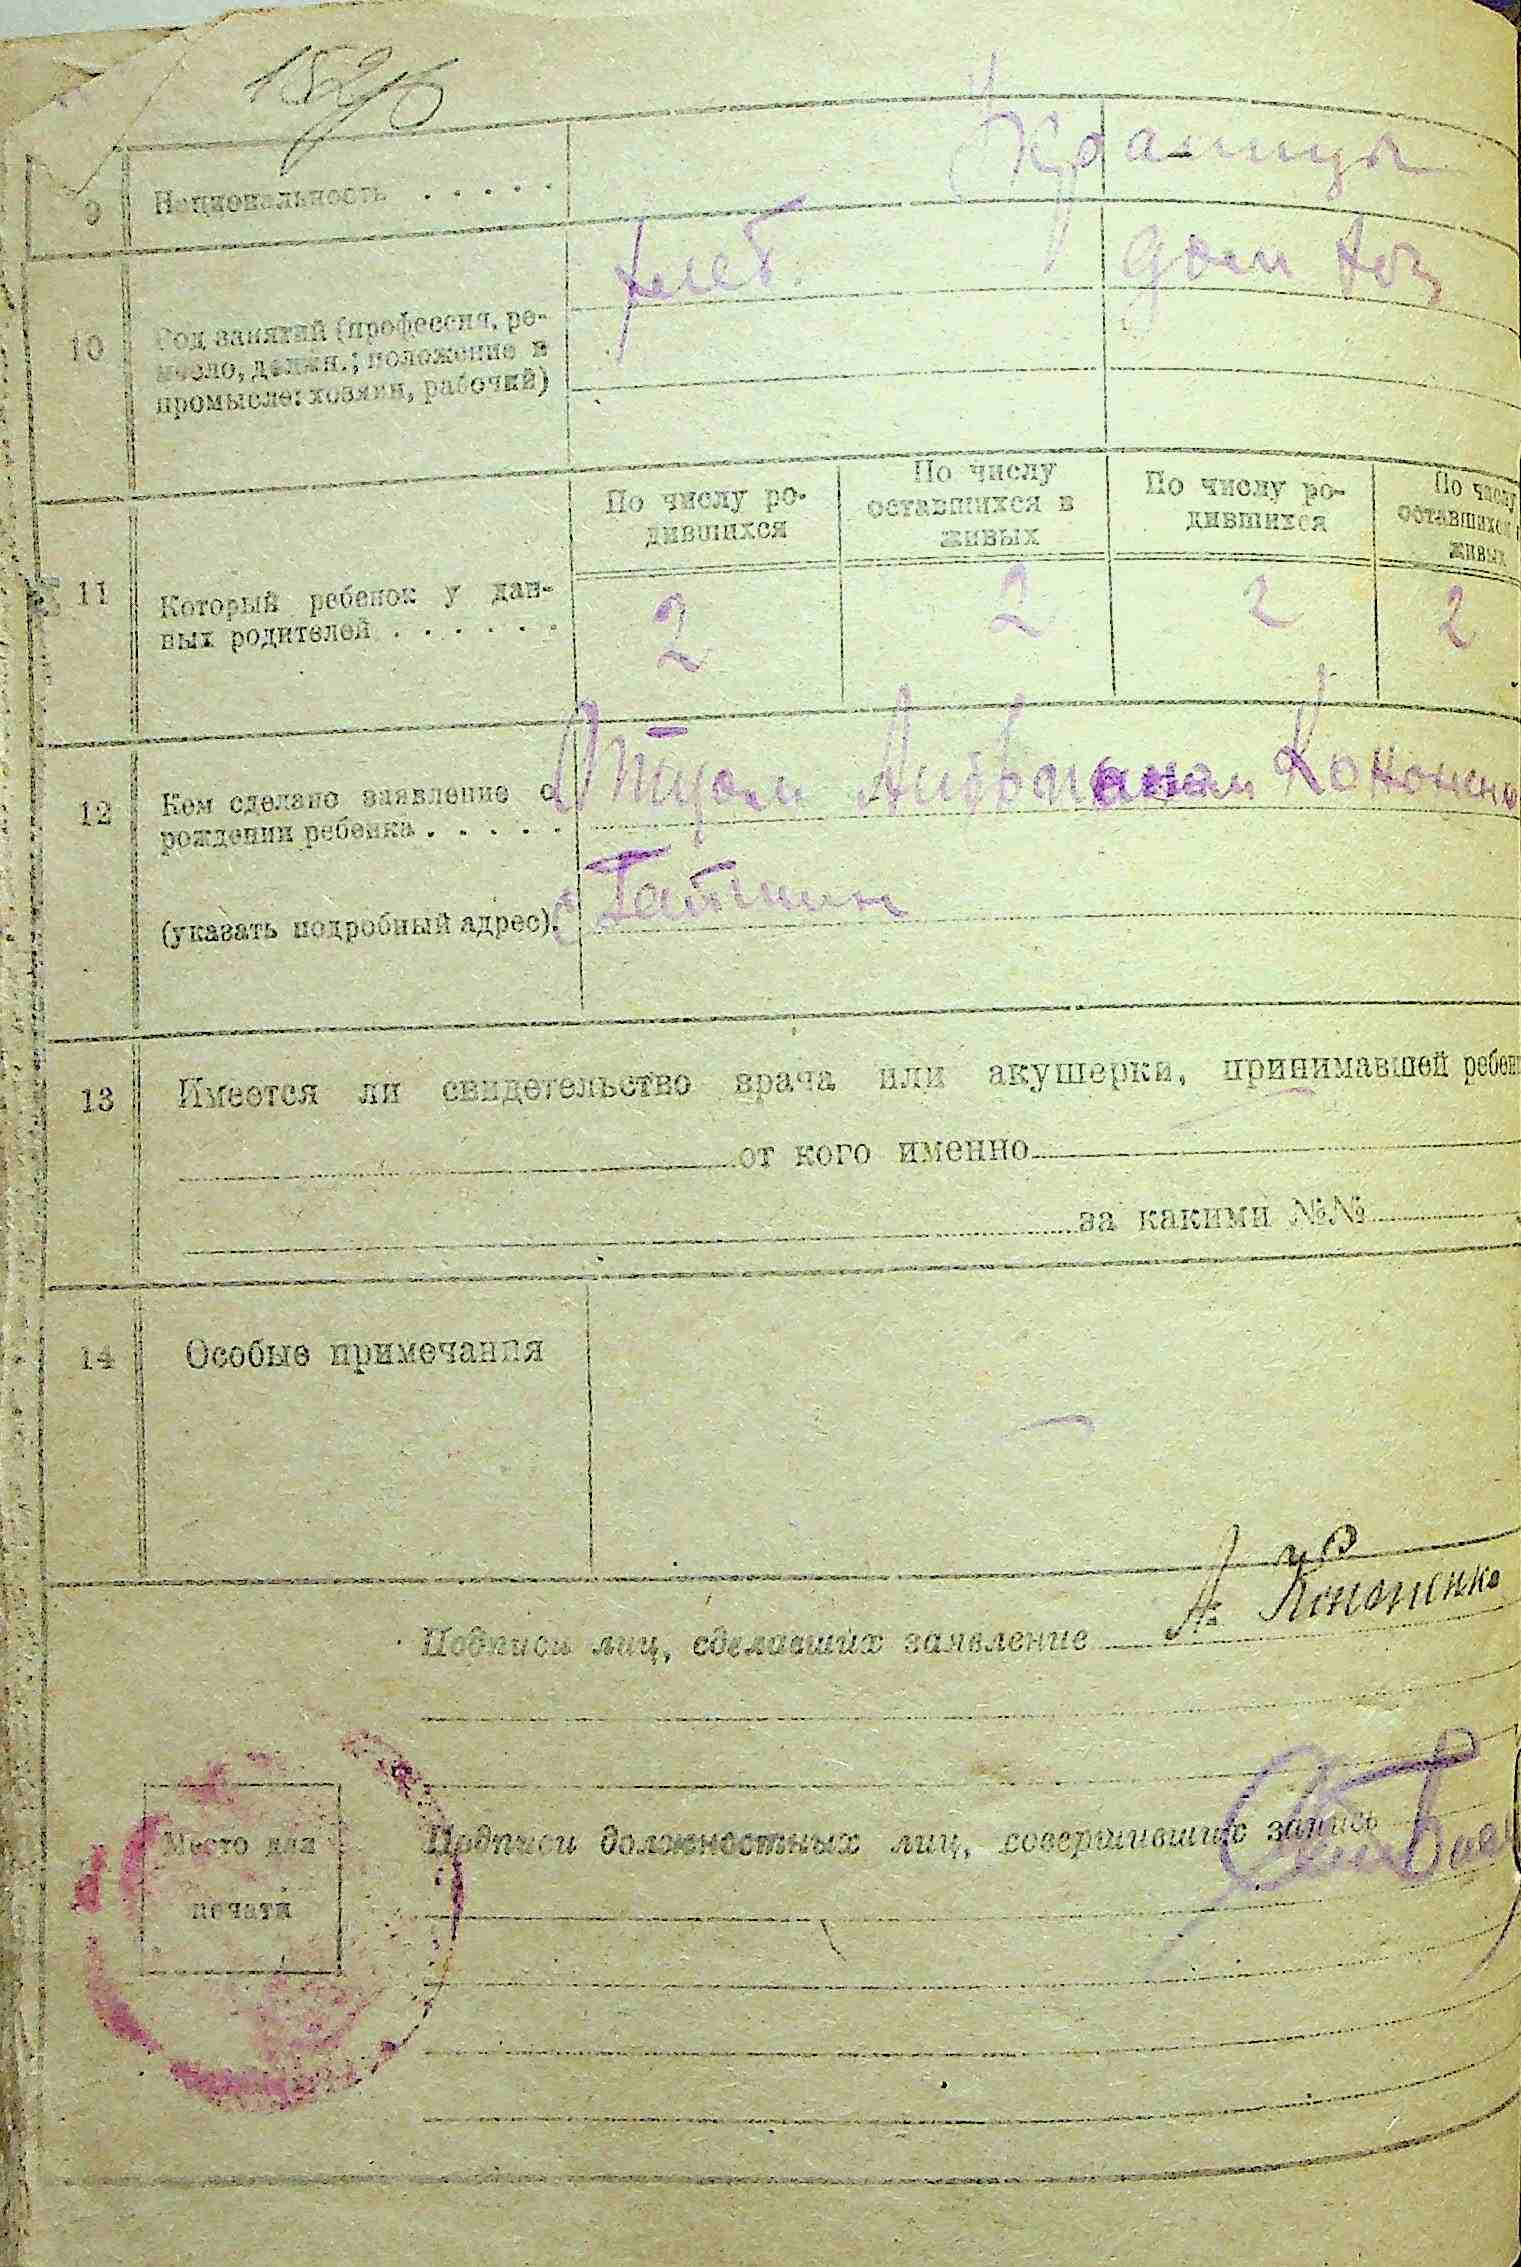 9 Национальность . . . . . Украинцы
10 Род занятий (профессия, ре-
месло, должн.; положение в
промысле: хозяин, рабочий)
хлеб. дом хоз
11 Который ребенок у дан-
ных родителей . . . . . .
По числу ро-
дившихся
По числу
оставшихся в
живых
По числу ро-
дившихся
По числу
оставшихся
живых
2 2 2 2
12 Кем сделано заявление о
рождении ребенка . . . . .
Отцом Кононенко
(указать подробный адрес).
с Гатним
13 Имеется ли свидетельство врача или акушерки, принимавшей ребен
от кого именно
за какими №№
14 Особые примечания —
Подписи лиц, сделавших заявление А. Кононенко
Подписи должностных лиц, совершивших запись
Место для
печати